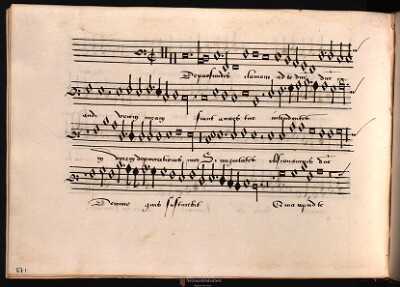 De profundis clamavi ad te dne dne ex
audi vocem meam fiant aures tue intendentes
in vocem deprecationis mee Si iniquitates observaveris dne
Domine quis sustinebit Quia apud te